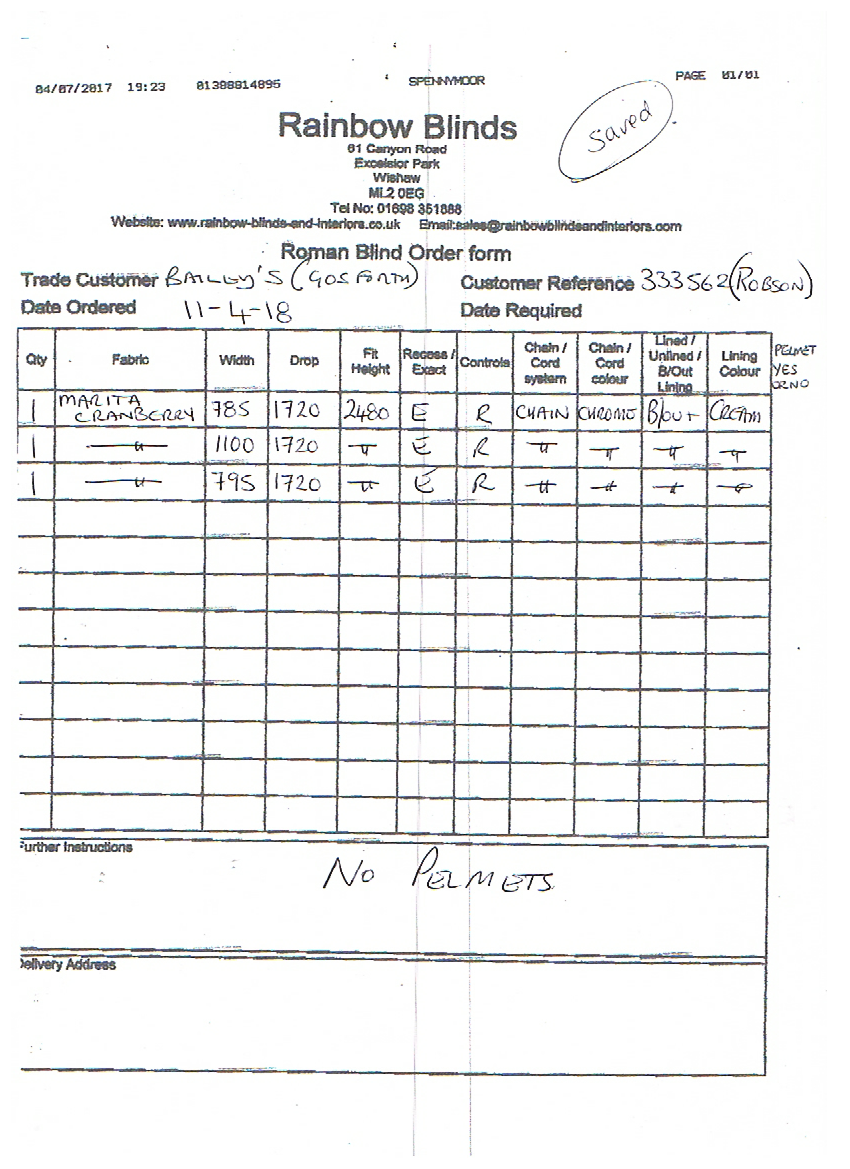 04/07/2017 19:23 01388814895 SPENNYMOOR PAGE 01/01
Saved
Rainbow Blinds
61 Canyon Road
Excelsior Park
Wishaw
ML2 0EG
Tel No: 01698 351888
Website: www.rainbow-blinds-and-interiors.co.uk Email:sales@rainbowblindsandinteriors.com
Roman Blind Order form
Trade Customer BAILEY'S (GOSFORTH) Customer Reference 333562 (ROBSON)
Date Ordered 11-4-18 Date Required
Qty Fabric Width Drop Fit Height Recess / Exact Controls Chain / Cord system Chain / Cord colour Lined / Unlined / B/Out Lining Lining Colour PELMET YES OR NO
1 MARITA CRANBERRY 785 1720 2480 E R CHAIN CHROME B/OUT CREAM
1 —"— 1100 1720 —"— E R —"— —"— —"— —"—
1 —"— 795 1720 —"— E R —"— —"— —"— —"—
Further Instructions
NO PELMETS
Delivery Address